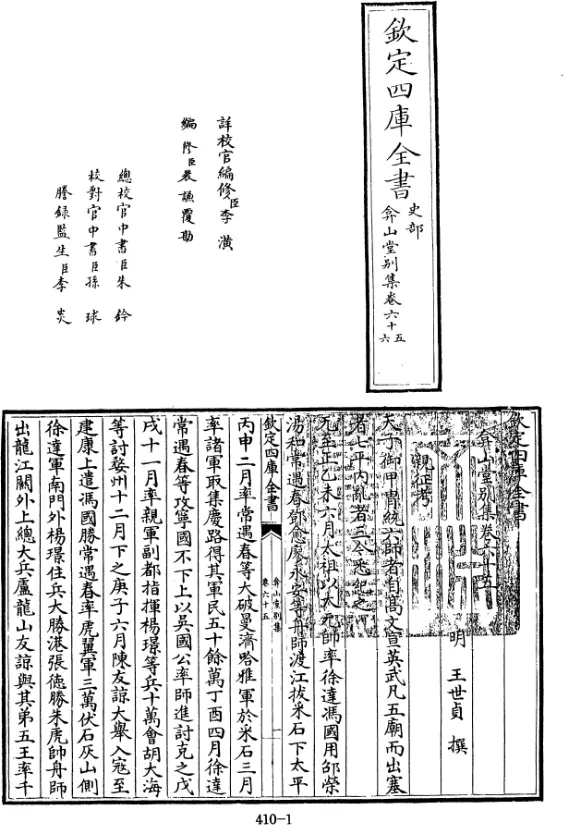 欽定四庫全書
史部
弇山堂别集卷六十五
六
詳校官編修臣李潢
編修臣裴謙覆勘
總校官中書臣朱鈐
校對官中書臣孫球
謄録監生臣李炎
欽定四庫全書
弇山堂别集卷六十五
明 王世貞 撰
親征考
天子御甲胄統六師者自髙文宣英武凡五廟而出塞
者七平内亂者三今悉紀之
元至正乙未六月太祖以大元帥率徐達馮國用邵榮
湯和常遇春鄧愈廖永安等舟師渡江拔采石下太平
欽定四庫全書
弇山堂别集
卷六十五
一
丙申二月率常遇春等大破曼濟哈雅軍於采石三月
率諸軍取集慶路得其軍民五十餘萬丁酉四月徐達
常遇春等攻寧國不下上以吳國公率師進討克之戊
戌十一月率親軍副都指揮楊璟等兵十萬會胡大海
等討婺州十二月下之庚子六月陳友諒大舉入寇至
建康上遣馮國勝常遇春率虎翼軍三萬伏石灰山側
徐達軍南門外楊璟住兵大勝港張德勝朱虎帥舟師
出龍江關外上總大兵盧龍山友諒與其弟五王率千
410-1